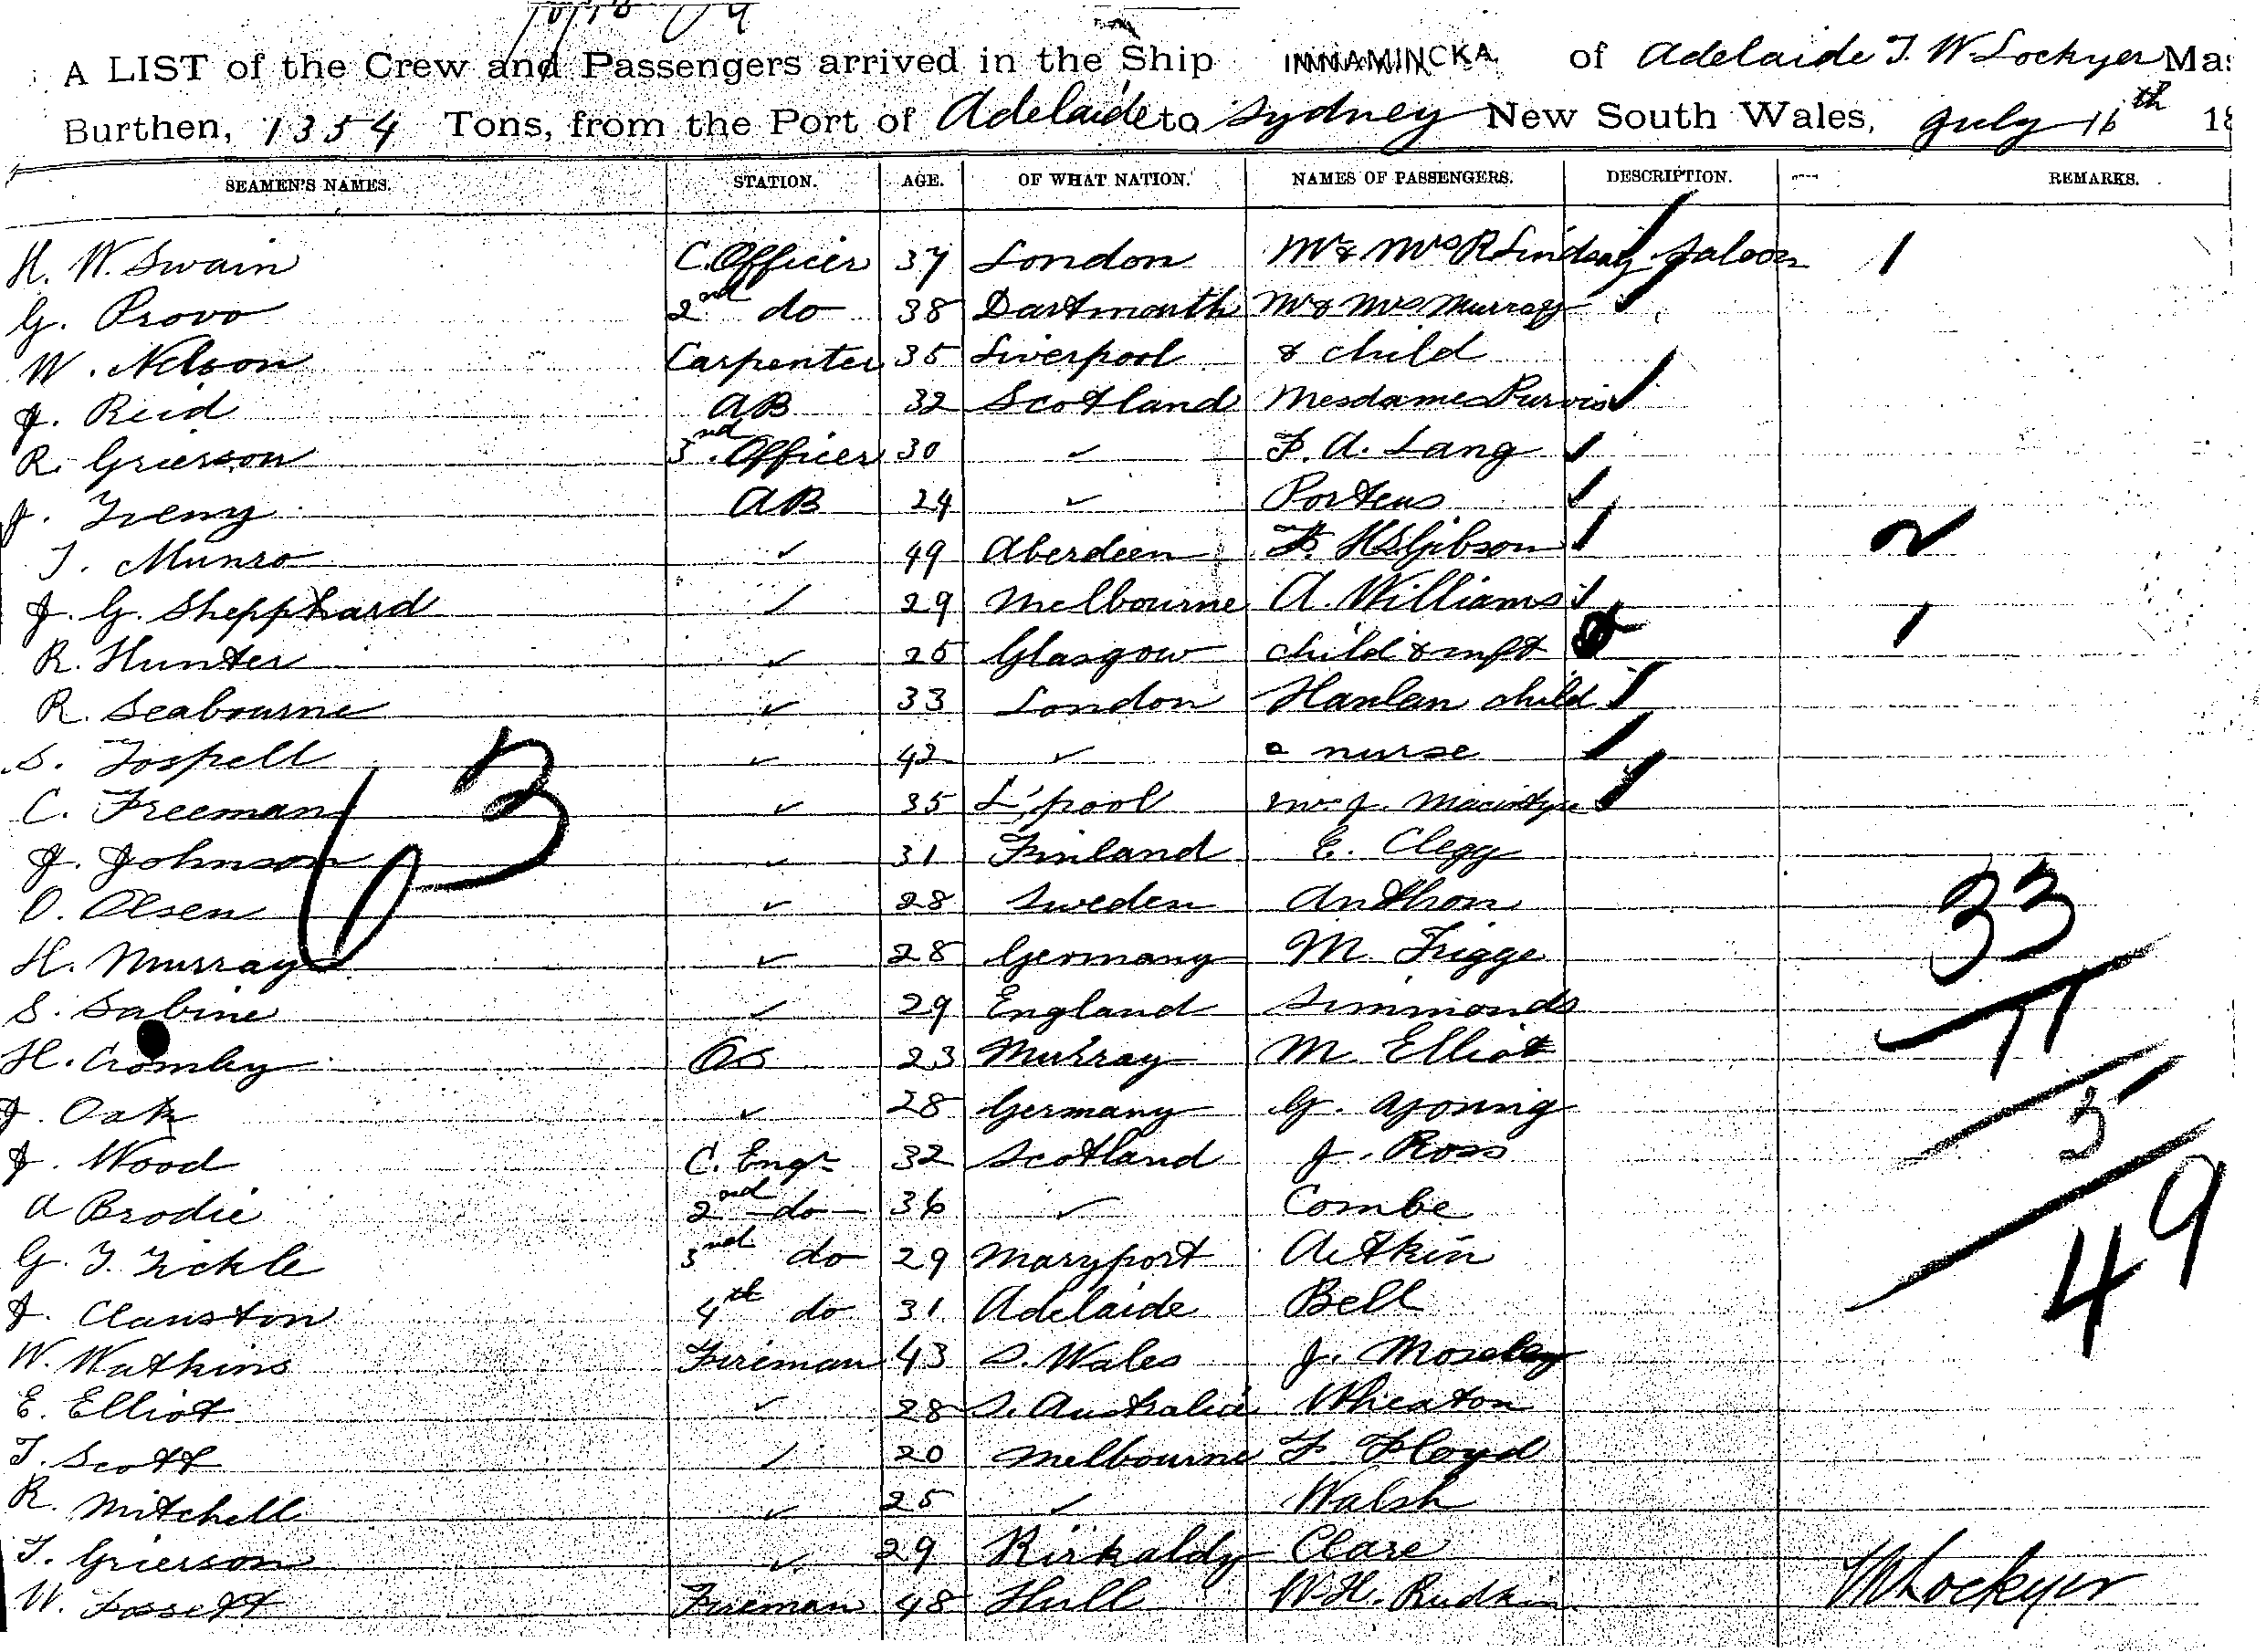 A LIST of the Crew and Passengers arrived in the Ship INNAMINCKA of Adelaide T. W. Lockyer Mas
Burthen, 1354 Tons, from the Port of Adelaide to Sydney New South Wales, July 16th 18
SEAMEN'S NAMES. STATION. AGE. OF WHAT NATION. NAMES OF PASSENGERS. DESCRIPTION. REMARKS.
H. W. Swain C. Officer 37 London Mr & Mrs R Lindsay Saloon 1
G. Provo 2nd do 38 Dartmouth Mr & Mrs Murray
W. Nelson Carpenter 35 Liverpool & child
J. Reid AB 32 Scotland Mesdames Purvis
R. Grierson 3rd Officer 30 ✓ F. A. Lang
J. AB 24 ✓ Porteus
T. Munro ✓ 49 Aberdeen H S Gibson 2
J. G. Shepphard ✓ 29 Melbourne A. Williams
R. Hunter ✓ 25 Glasgow child & inft 1
R. Seabourne ✓ 33 London Hanlan child
S. Tospell ✓ 42 ✓ & nurse
C. Freeman ✓ 35 L'pool J. Macintyre
J. Johnson ✓ 31 Finland E. Clegg
O. Olsen ✓ 28 Sweden Anthron
63
33
H. Murray ✓ 28 Germany M. Trigge
S. Sabine ✓ 29 England Simmonds
11
H. Cromby OS 23 Murray M Elliot
J. Oak ✓ 28 Germany G. Young
5
J. Wood C. Engr 32 Scotland J. Ross
A Brodie 2nd do 36 ✓ Combe
49
G. T. Tickle 3rd do 29 Maryport Aitkin
J. Clauston 4th do 31 Adelaide Bell
W. Watkins Fireman 43 S. Wales J. Moseley
E. Elliot ✓ 28 S. Australia Wheaton
T. Scott ✓ 20 Melbourne F Floyd
R. Mitchell ✓ 25 ✓ Walsh
T. Grierson ✓ 29 Kirkaldy Clare
W. Fossett Fireman 48 Hull W. H. Rudkin
TWLockyer